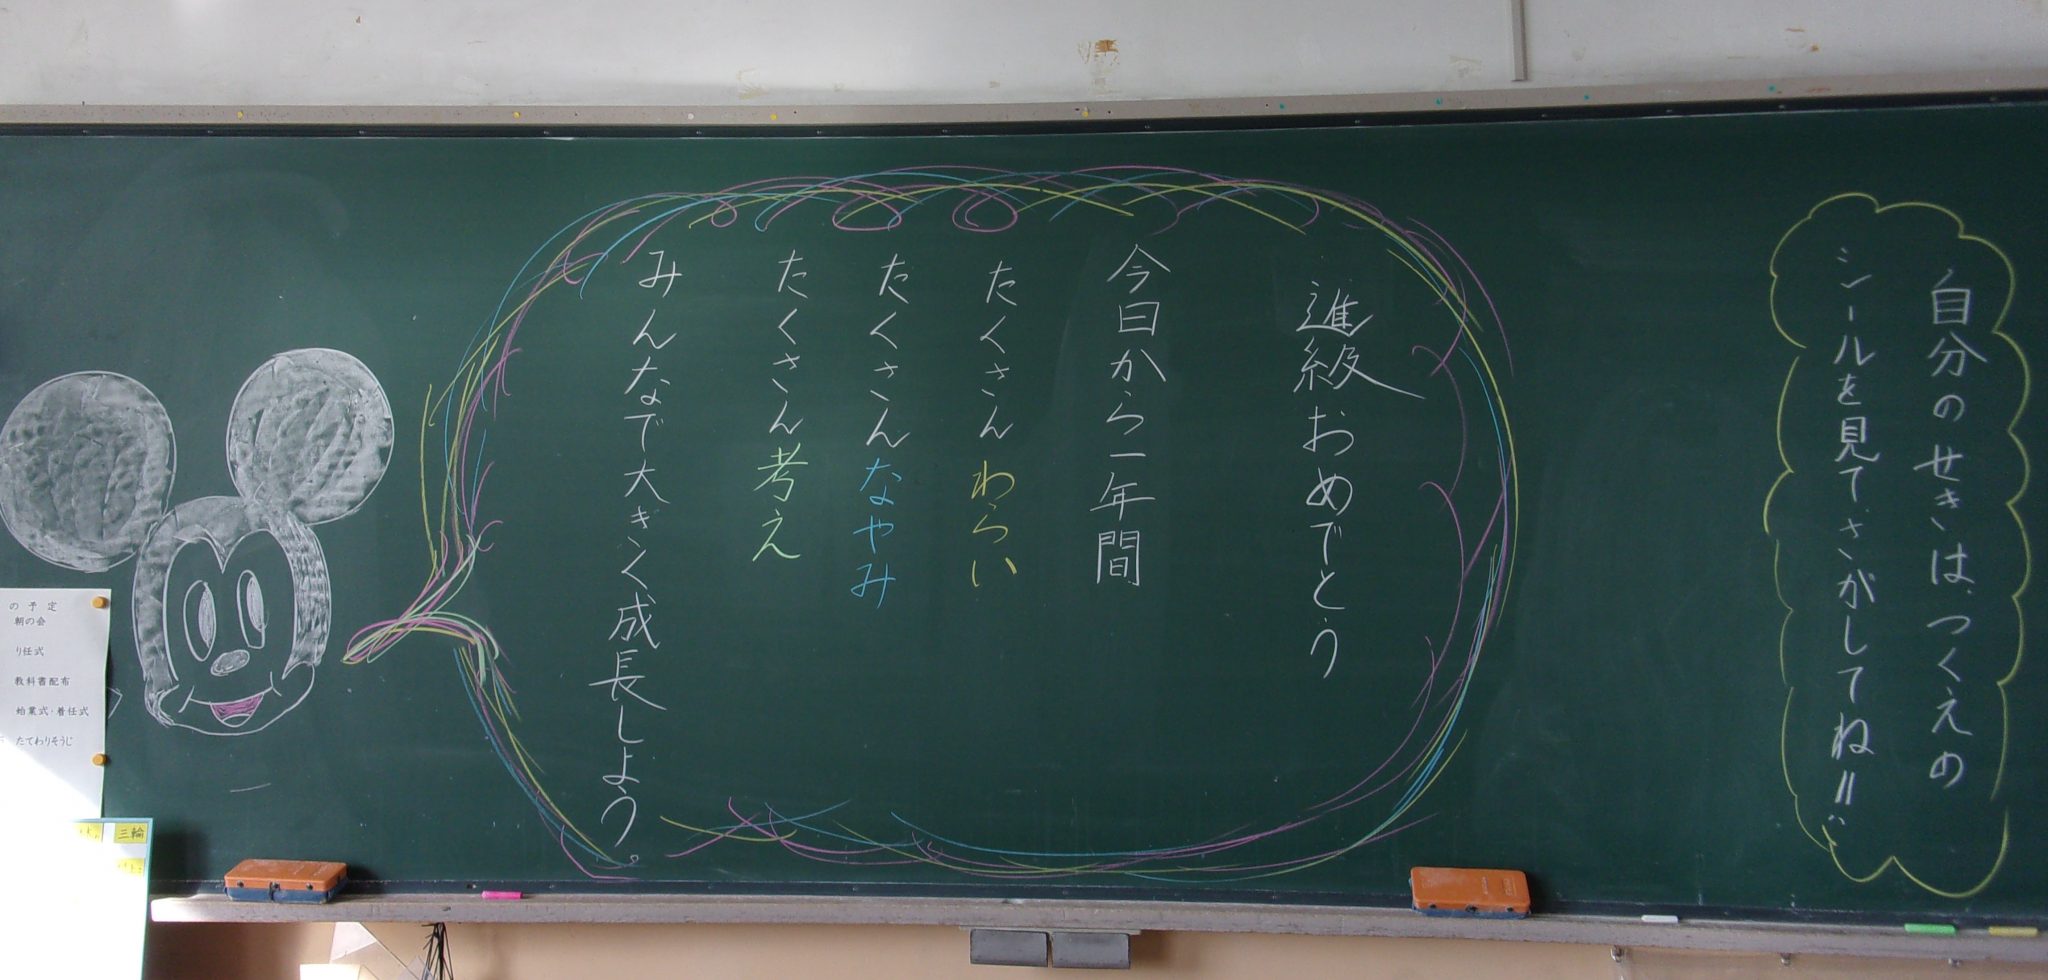 自分のせきは、つくえの
シールを見て、さがしてね!!
進級おめでとう
今日から一年間
たくさんわらい
たくさんなやみ
たくさん考え
みんなで大きく成長しよう。
の予定
朝の会
り任式
教科書配布
始業式・着任式
たてわりそうじ
三輪